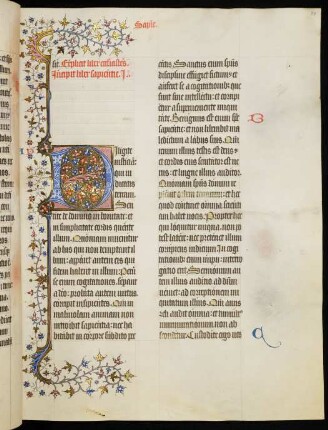 Sapie.
sie. Explicit liber ecclesiastes.
Incipit liber sapientie. I.
iligite
iusticiam
qui iu
dicatis
terram.
Sen
tite de domino in bonitate: et
in simplicitate cordis querite
illum. Quoniam inuenitur
ab hiis qui non temptant il
lum: apparet autem eis qui
fidem habent in illum. Peruer
se enim cogitationes separant
a deo: probata autem uirtus
corripit insipientes. Quoniam in
maliuolam animam non
introibit sapientia: nec ha
bitabit in corpore subdito pec
catis. Sanctus enim spiritus
discipline effugiet fictum: et
auferet se a cogitationibus que
sunt sine intellectu: et corripi
etur a superueniente iniqui
tate. Benignus est enim spiritus
sapientie: et non liberabit ma
ledictum a labiis suis. Quoniam
renum illius testis est deus:
et cordis eius scrutator est ue
rus: et lingue illius auditor.
Quoniam spiritus domini re
pleuit orbem terrarum: et hoc
quod continet omnia scienti
am habet uocis. Propter hoc
qui loquitur iniqua: non po
test latere: nec preteriet illum
corripiens iudicium. In cogi
tationibus enim impii: interro
gatio erit. Sermonum au
tem illius auditio ad deum
ueniet: ad correptionem ini
quitatum illius. Quoniam auris
zeli audit omnia: et tumultus
murmurationum non ab
scondetur. Custodite ergo uos